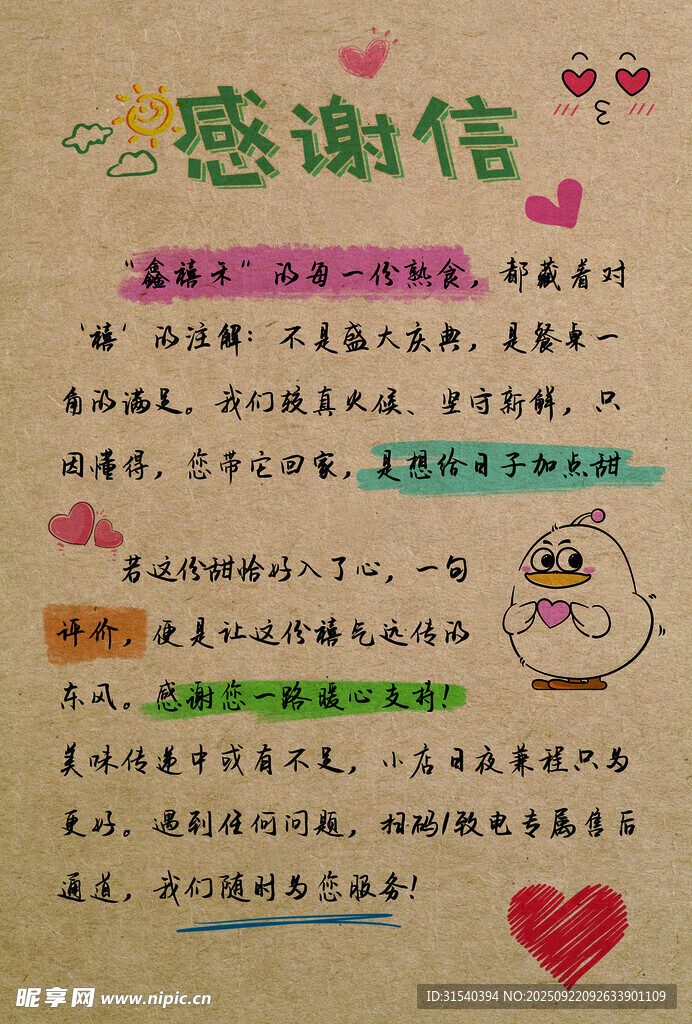 感谢信
“鑫禧禾”的每一份熟食，都藏着对
‘禧’的注解：不是盛大庆典，是餐桌一
角的满足。我们较真火候、坚守新鲜，只
因懂得，您带它回家，是想给日子加点甜
若这份甜恰好入了心，一句
评价，便是让这份禧气远传的
东风。感谢您一路暖心支持！
美味传递中或有不足，小店日夜兼程只为
更好。遇到任何问题，扫码/致电专属售后
通道，我们随时为您服务！
昵享网 www.nipic.cn
ID:31540394 NO:20250922092633901109